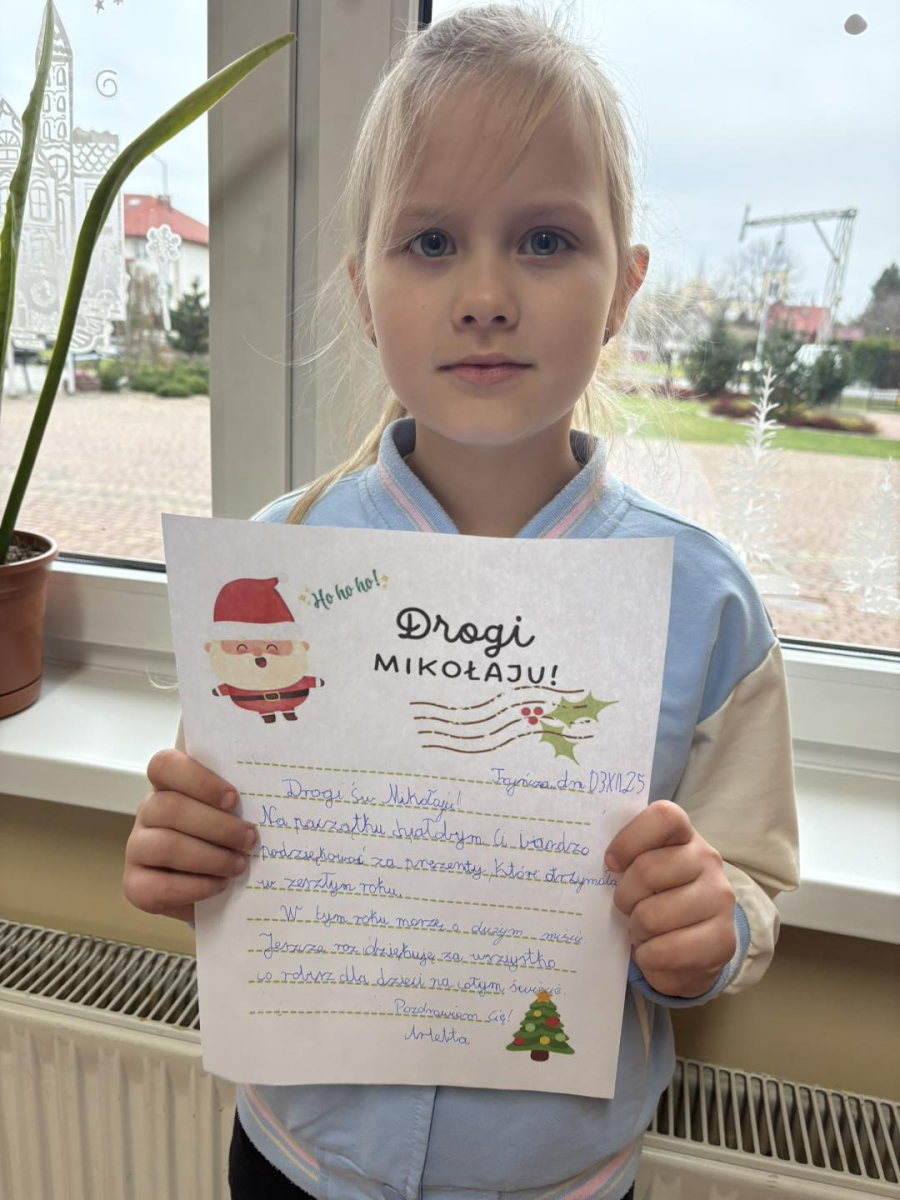 Ho ho ho!
Drogi
MIKOŁAJU!
dn 03XII.25
Drogi Św. Mikołaju!
Na początku chciałabym Ci bardzo
podziękować za prezenty, które otrzymała
w zeszłym roku.
W tym roku marzę o dużym misiu
Jeszcze raz dziękuję za wszystko
co robisz dla dzieci na całym świecie.
Pozdrawiam Cię!
Arletta